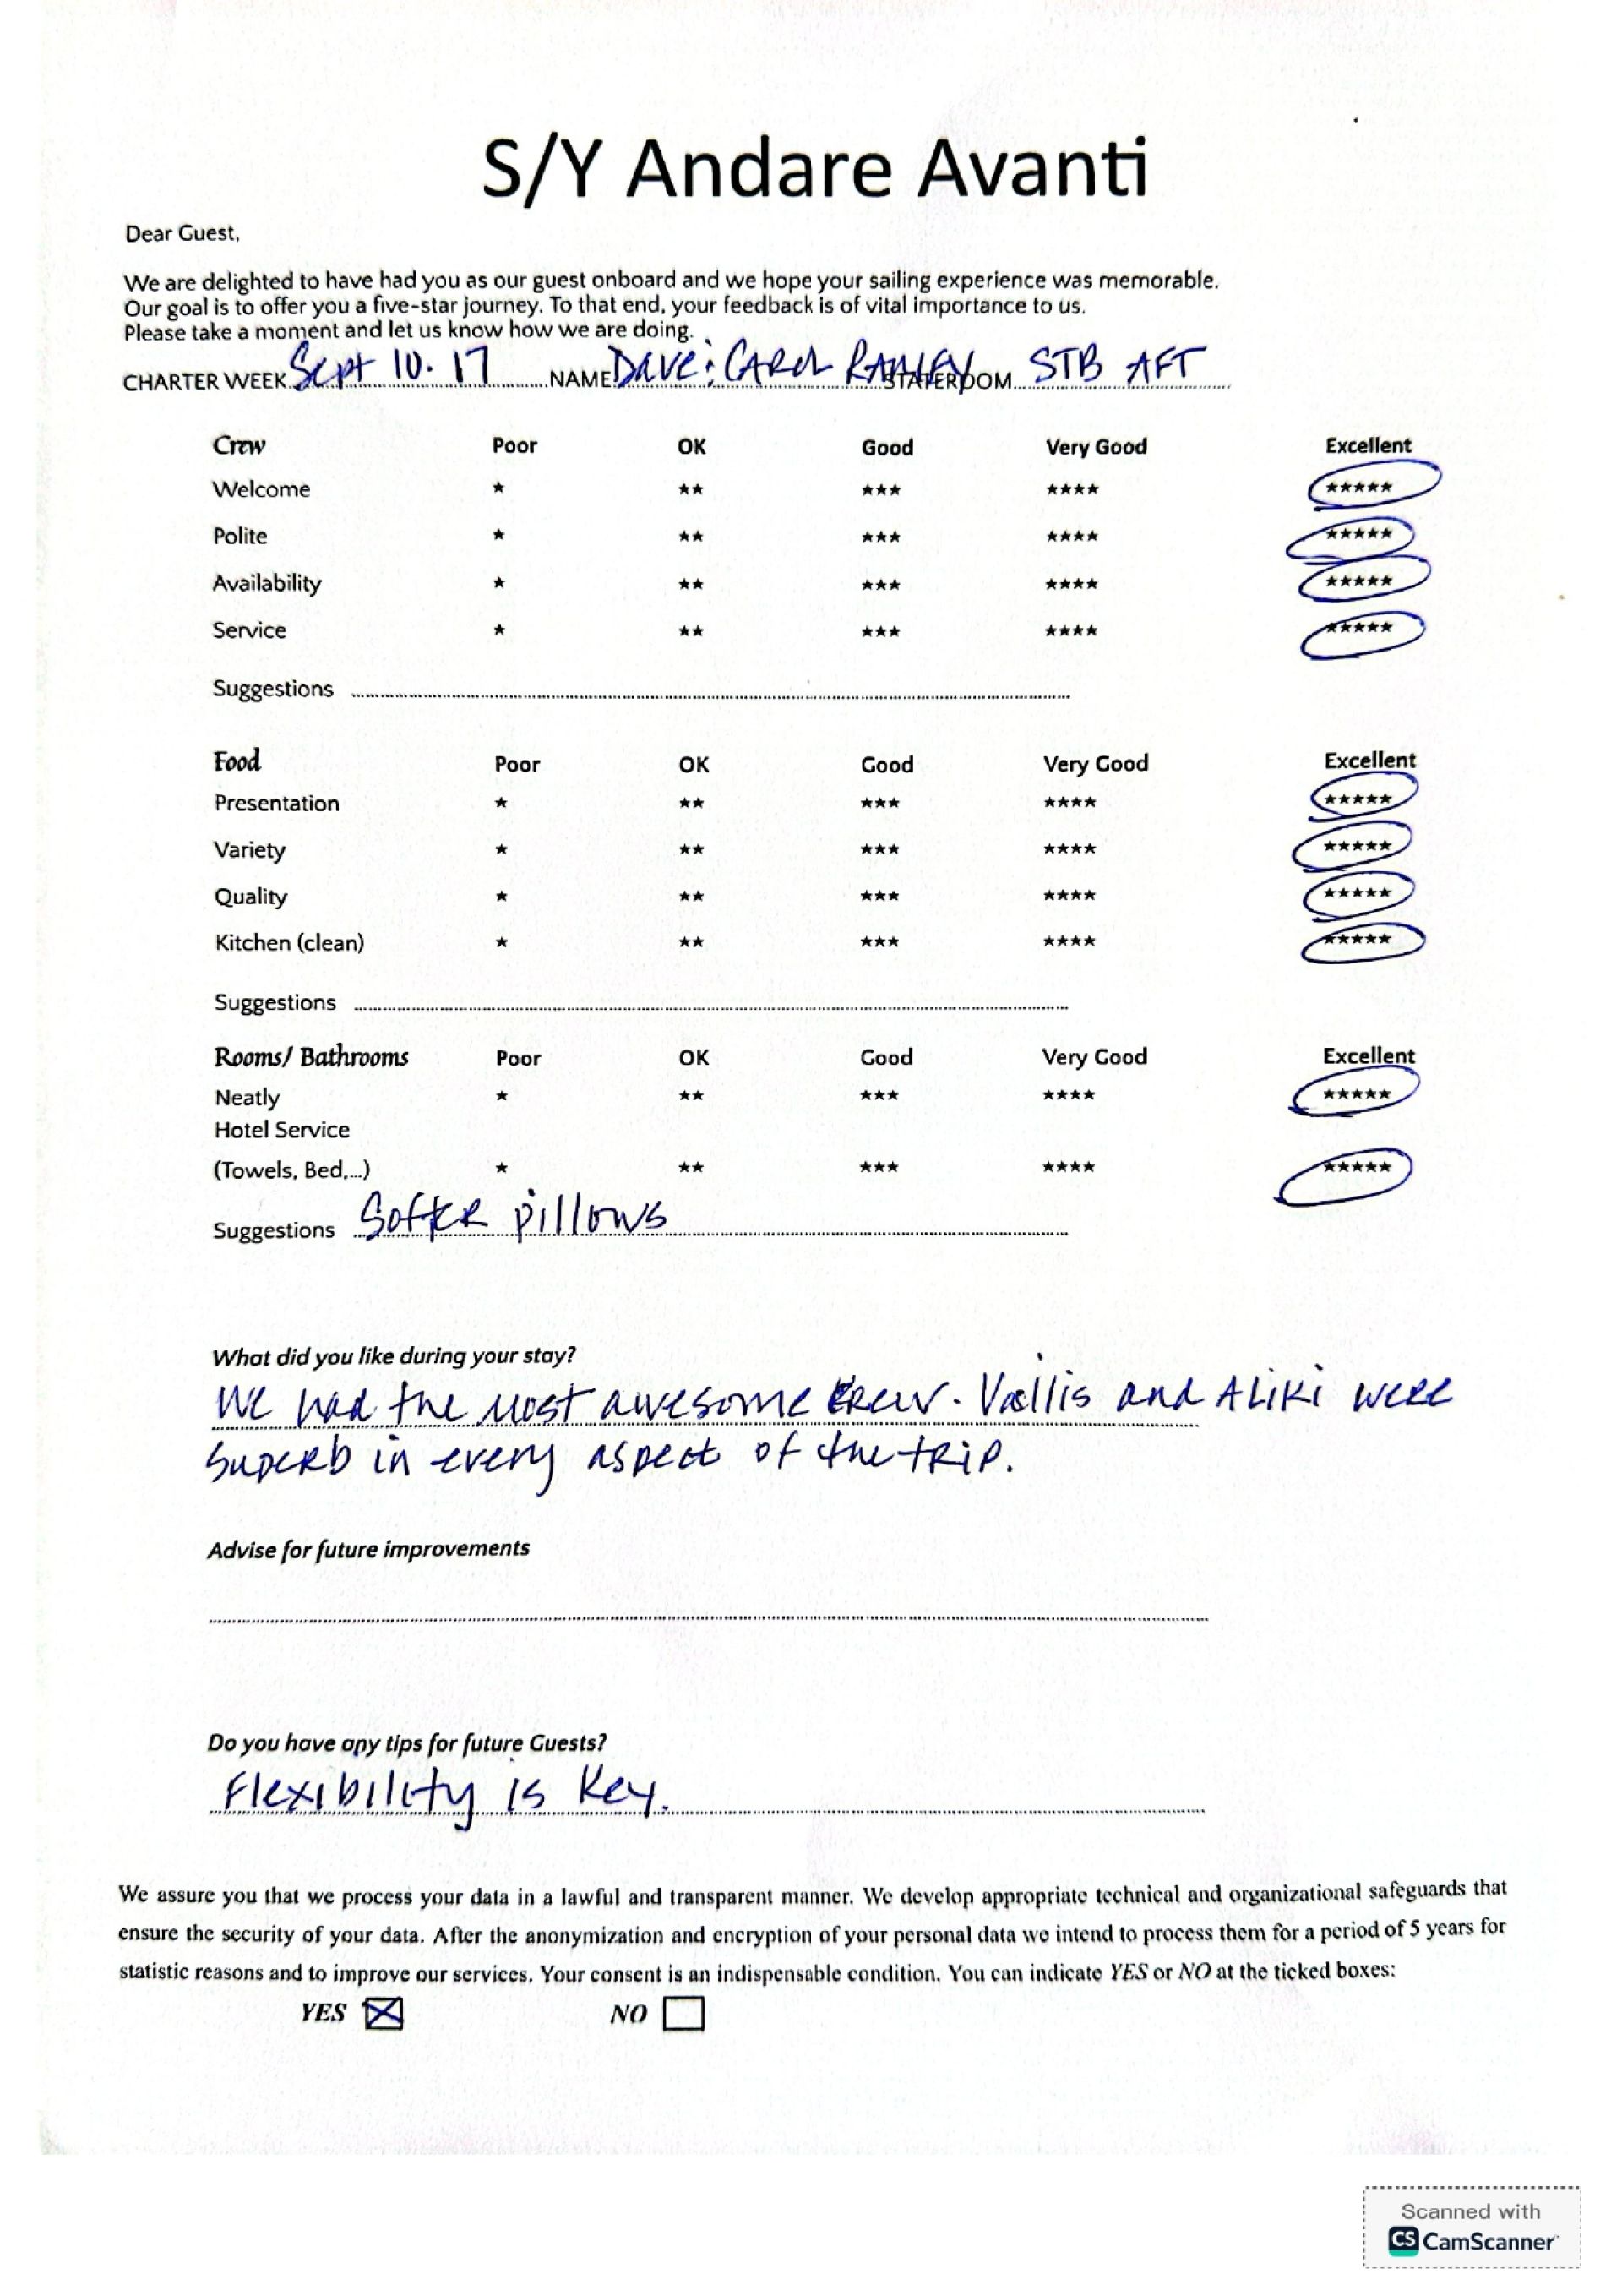 S/Y Andare Avanti
Dear Guest,
We are delighted to have had you as our guest onboard and we hope your sailing experience was memorable.
Our goal is to offer you a five-star journey. To that end, your feedback is of vital importance to us.
Please take a moment and let us know how we are doing.
CHARTER WEEK Sept 10. 17 NAME Dave : CAROL STATEROOM STB AFT
Crew Poor OK Good Very Good Excellent
Welcome ★ ★★ ★★★ ★★★★ ★★★★★
Polite ★ ★★ ★★★ ★★★★ ★★★★★
Availability ★ ★★ ★★★ ★★★★ ★★★★★
Service ★ ★★ ★★★ ★★★★ ★★★★★
Suggestions
Food Poor OK Good Very Good Excellent
Presentation ★ ★★ ★★★ ★★★★ ★★★★★
Variety ★ ★★ ★★★ ★★★★ ★★★★★
Quality ★ ★★ ★★★ ★★★★ ★★★★★
Kitchen (clean) ★ ★★ ★★★ ★★★★ ★★★★★
Suggestions
Rooms/ Bathrooms Poor OK Good Very Good Excellent
Neatly ★ ★★ ★★★ ★★★★ ★★★★★
Hotel Service
(Towels, Bed,...) ★ ★★ ★★★ ★★★★ ★★★★★
Suggestions Softer pillows
What did you like during your stay?
We had the most awesome crew. and Aliki were
superb in every aspect of the trip.
Advise for future improvements
Do you have any tips for future Guests?
Flexibility is key.
We assure you that we process your data in a lawful and transparent manner. We develop appropriate technical and organizational safeguards that
ensure the security of your data. After the anonymization and encryption of your personal data we intend to process them for a period of 5 years for
statistic reasons and to improve our services. Your consent is an indispensable condition. You can indicate YES or NO at the ticked boxes:
YES ☒ NO ☐
Scanned with
CS CamScanner